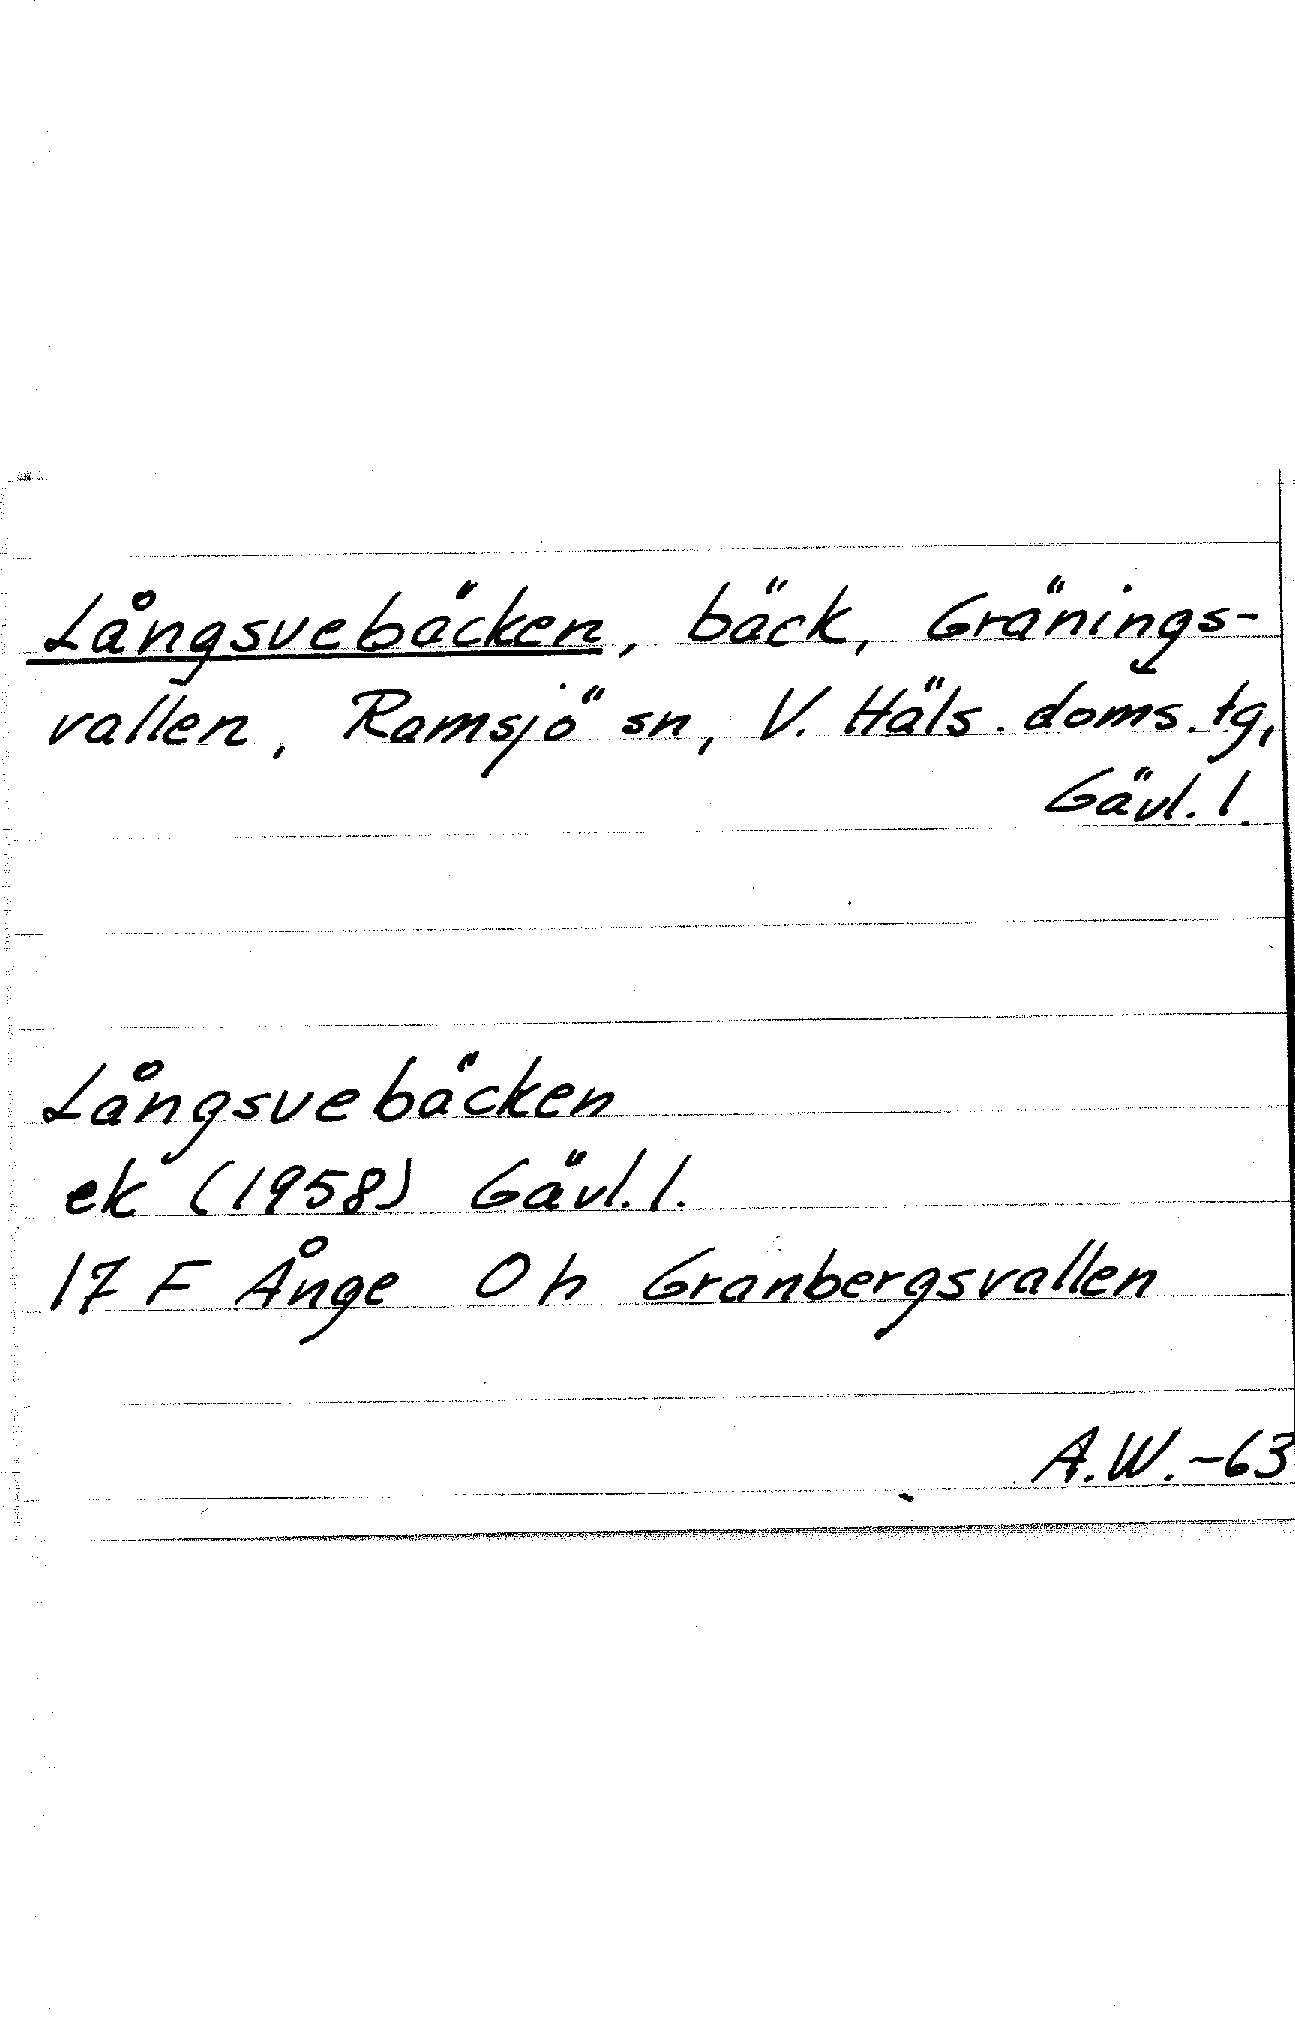 Långsvebäcken, bäck, Gränings-
vallen, Ramsjö sn, V. Häls. doms. tg,
Gävl. l.
Långsvebäcken
ek (1958) Gävl. l.
17 F Ånge 0 h Granbergsvallen
A.W.-63